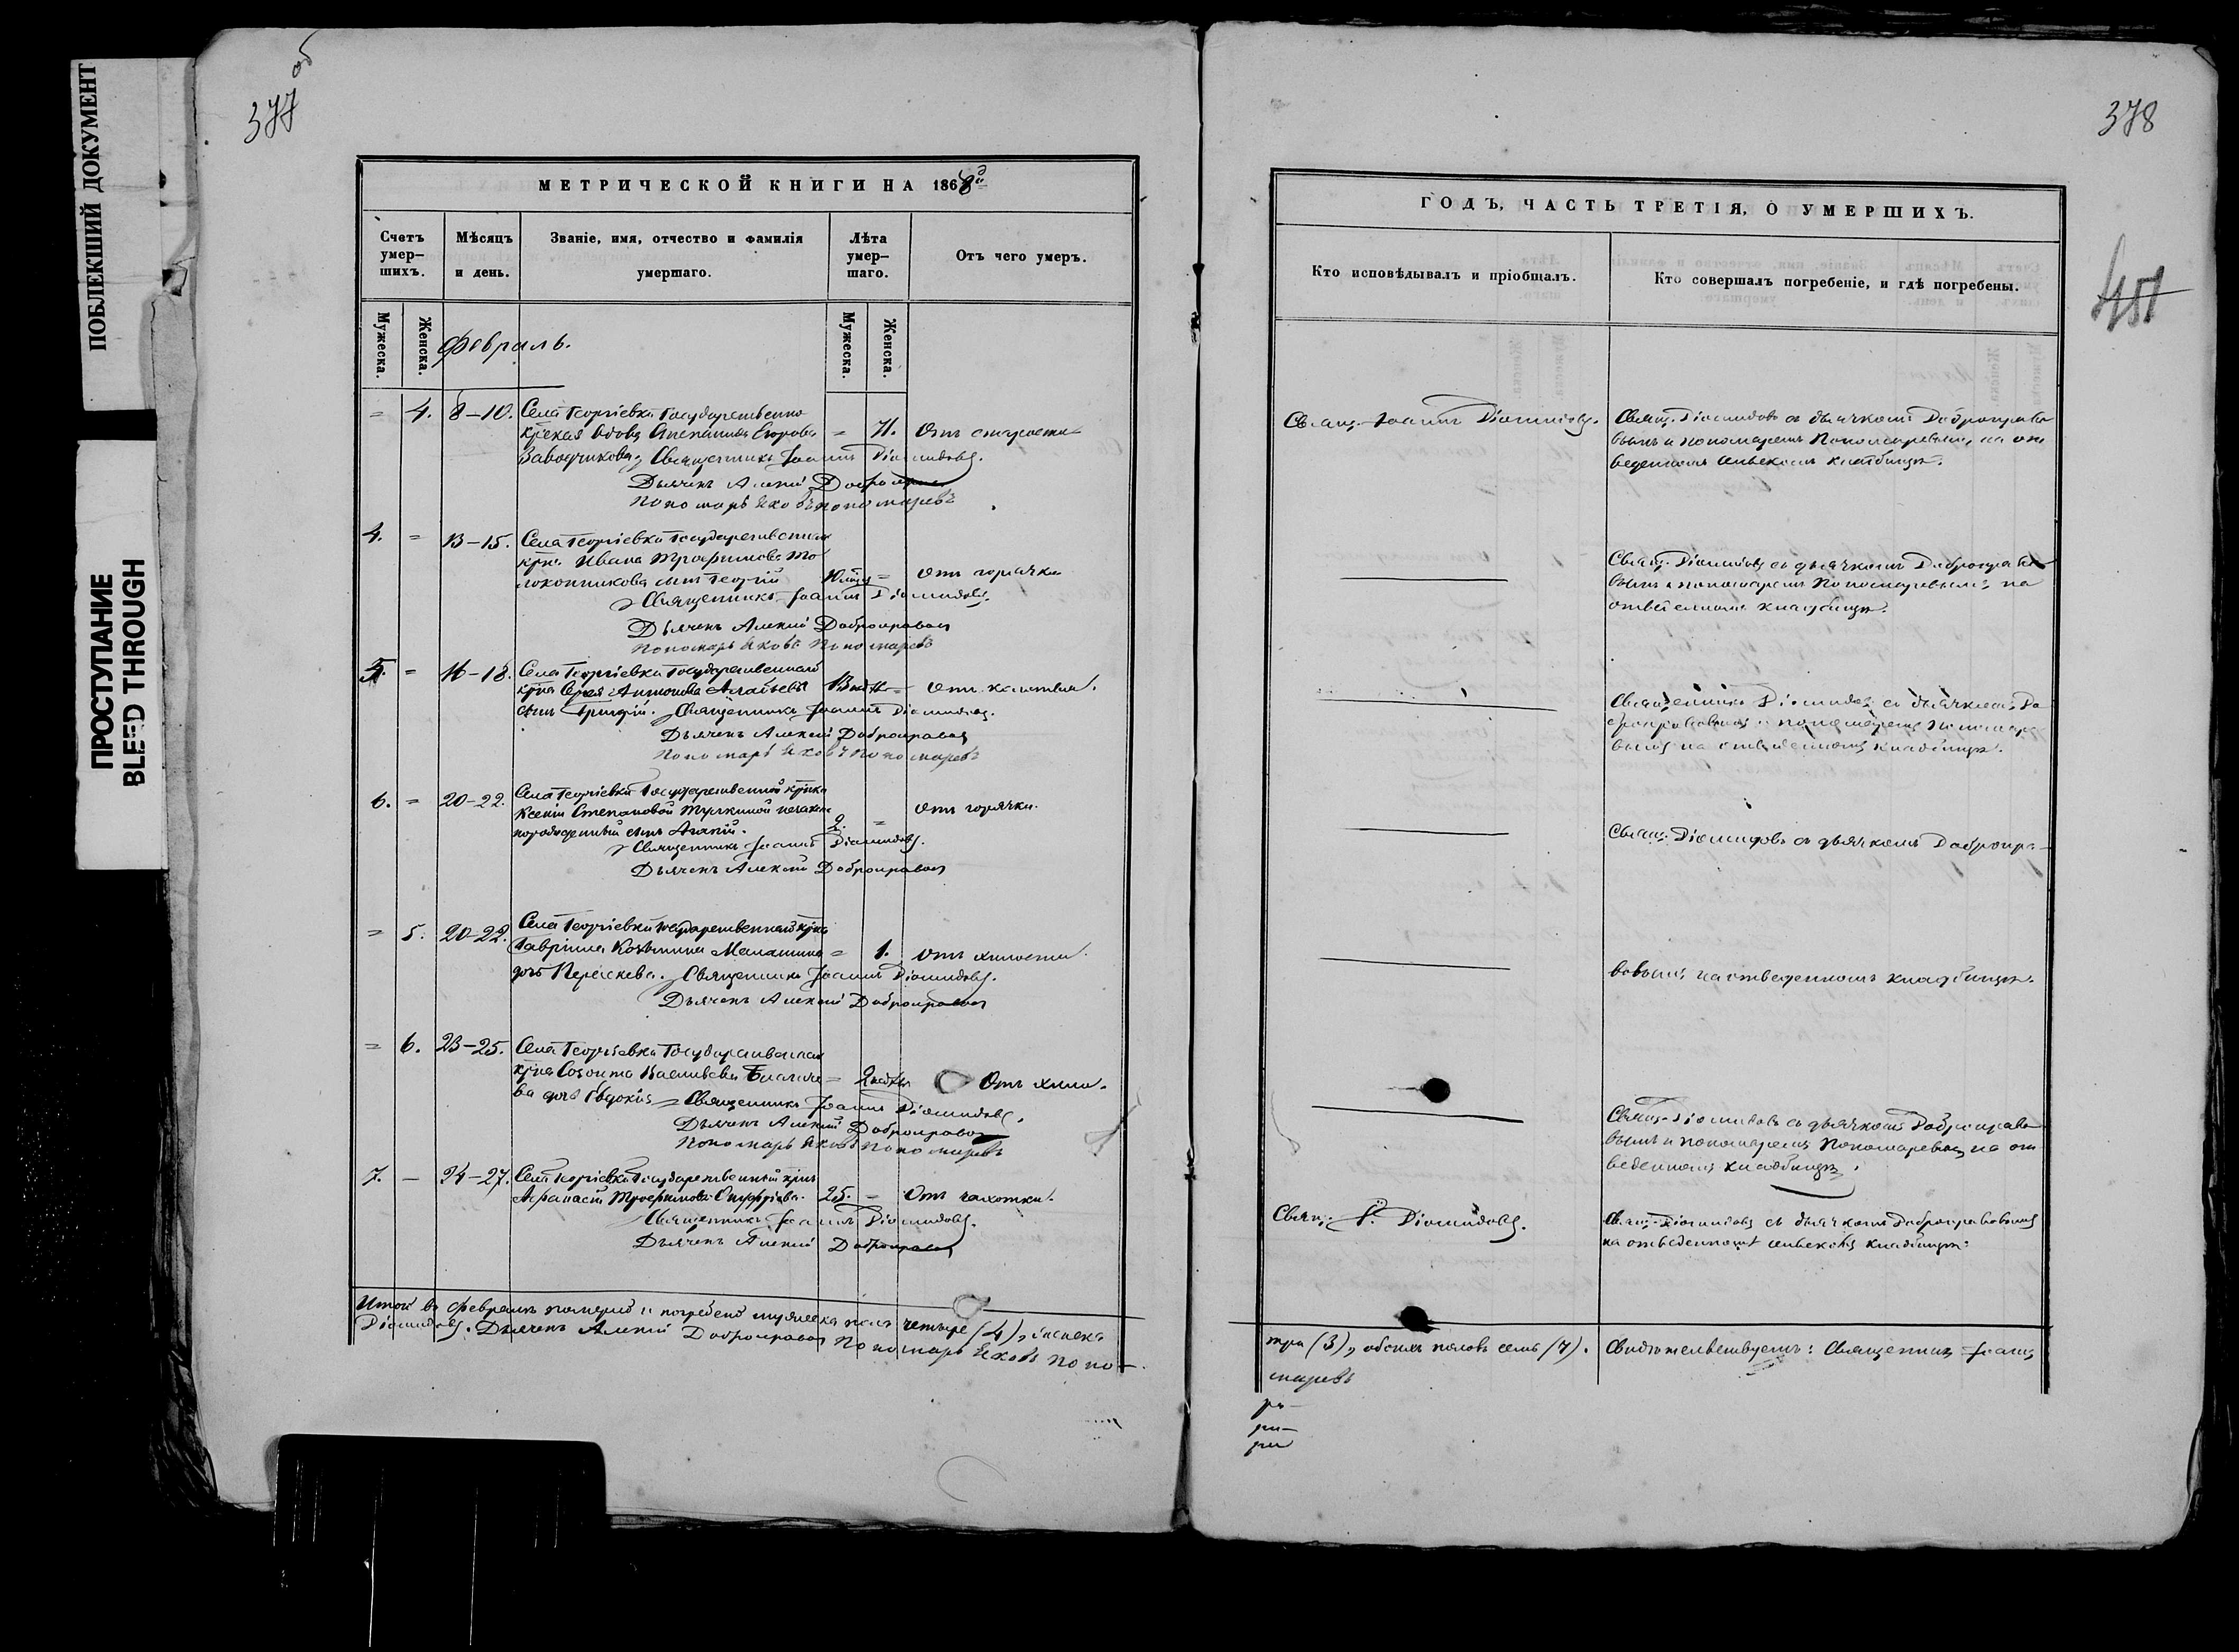 ПОБЛЕКШИЙ ДОКУМЕНТ
ПРОСТУПАНИЕ
BLEED THROUGH
377
об
МЕТРИЧЕСКОЙ КНИГИ НА 1868й
Счетъ умер-шихъ.
Мѣсяцъ и день.
Званіе, имя, отчество и фамилія умершаго.
Лѣта умер-шаго.
Отъ чего умеръ.
Мужеска.
Женска.
Мужеска.
Женска.
Февраль.
= 4. 8-10. Села Георгіевки Государственно
крская вдова Степанида Егорова = 71. Отъ старости
Заводчикова, Священникъ Іоаннъ Діомидовъ.
Дьячекъ Алексій Доброправовъ
Пономарь Яковъ Пономаревъ
4. = 13-15. Села Георгіевки Государственнаго
крна Ивана Трофимова То
локонникова сынъ Георгій = Отъ горячки
Священникъ Іоаннъ Діомидовъ.
Дьячекъ Алексій Доброправовъ
Пономарь Яковъ Пономаревъ
5. = 16-18. Села Георгіевки Государственнаго
крна Антонова
сынъ Григорій. Священникъ Іоаннъ Діомидовъ.
Дьячекъ Алексій Доброправовъ
Пономарь Яковъ Пономаревъ
6. = 20-22. Села Георгіевки Государственной крнки
Ксеніи Степановой незакон
норожденный сынъ 2. = Отъ горячки.
Священникъ Іоаннъ Діомидовъ.
Дьячекъ Алексій Доброправовъ
= 5. 20-22. Села Георгіевки Государственнаго крна
Гавріила Козьмина Малашина = 1. Отъ
дчь Параскева. Священникъ Іоаннъ Діомидовъ.
Дьячекъ Алексій Доброправовъ
= 6. 23-25. Села Георгіевки Государственнаго
крна Созонта Васильева = Отъ
ва дчь Евдокія Священникъ Іоаннъ Діомидовъ.
Дьячекъ Алексій Доброправовъ
Пономарь Яковъ Пономаревъ
7. - 24-27. Села Георгіевки Государственный крнъ
Афанасій Трофимовъ 25. - Отъ чахотки.
Священникъ Іоаннъ Діомидовъ.
Дьячекъ Алексій Доброправовъ
Итого въ Февралѣ и погребено мужеска пола четыре (4), женска
Діомидовъ. Дьячекъ Алексій Доброправовъ Пономарь Яковъ Поно-
378
451
ГОДЪ, ЧАСТЬ ТРЕТІЯ, О УМЕРШИХЪ.
Кто исповѣдывалъ и пріобщалъ.
Кто совершалъ погребеніе, и гдѣ погребены.
Свящ. Іоаннъ Діомидовъ.
Свящ. Діомидовъ съ дьячкомъ Доброправо
вымъ и пономаремъ Пономаревымъ, на от
веденномъ сельскомъ кладбищѣ.
Свящ. Діомидовъ съ дьячкомъ Доброправо
вымъ и пономаремъ Пономаревымъ, на
кладбищѣ.
Священникъ Діомидовъ съ дьячкомъ До
броправовымъ и пономаремъ Пономаре
вымъ на отведенномъ кладбищѣ.
Свящ. Діомидовъ съ дьячкомъ Добропра-
вовымъ, на отведенномъ кладбищѣ.
Свящ. Діомидовъ съ дьячкомъ Доброправо
вымъ и пономаремъ Пономаревымъ, на от
веденномъ кладбищѣ.
Свящ. І. Діомидовъ.
Свящ. Діомидовъ съ дьячкомъ Доброправовымъ
на отведенномъ сельскомъ кладбищѣ.
три (3), обоихъ половъ семь (7). Свидѣтельствуемъ: Священникъ Іоаннъ
маревъ